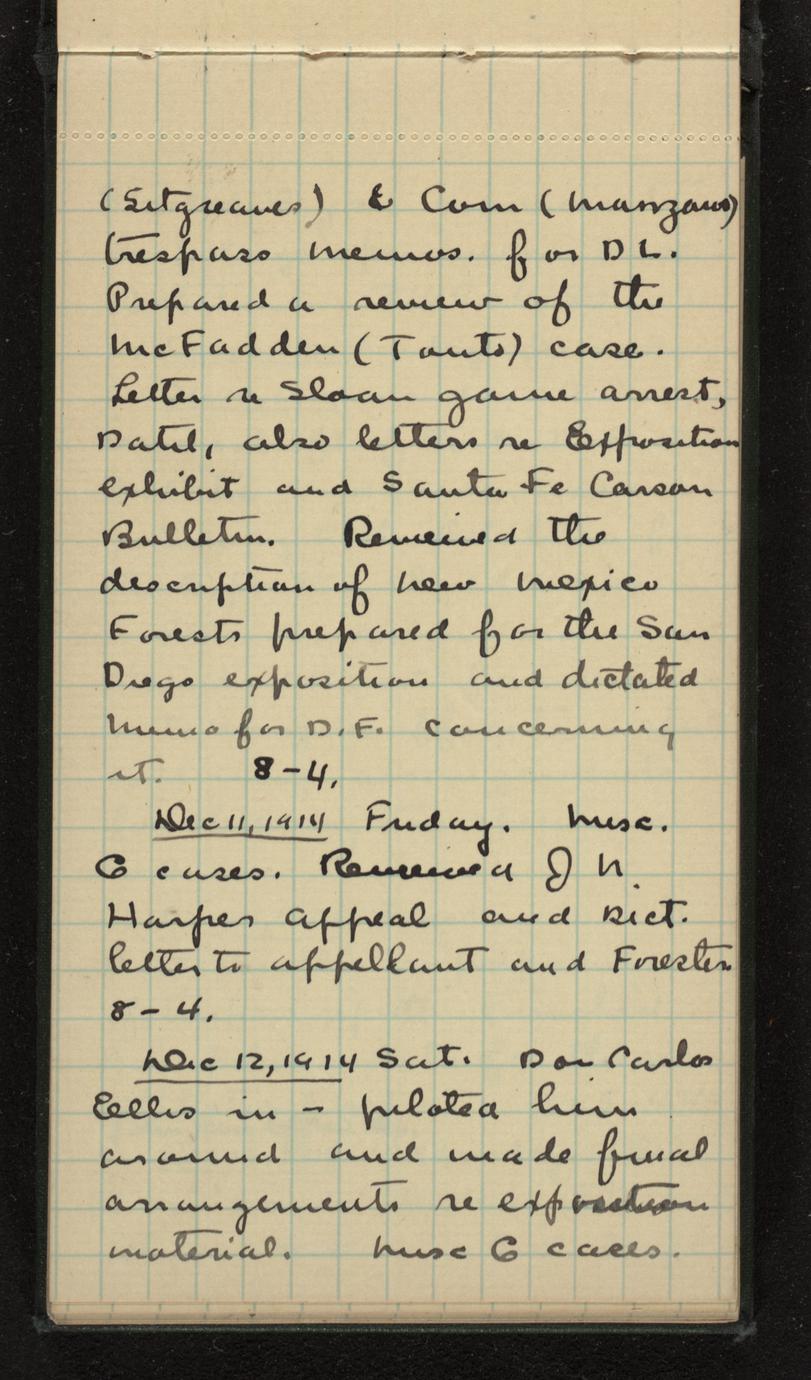 (Sitgreaves) & Corn (Manzano)
trespass memos. for D L.
Prepared a review of the
McFadden (Tonto) case.
Letter re Sloan game arrest,
Datil, also letters re Exposition
exhibit and Santa Fe Carson
Bulletin. Reviewed the
description of New Mexico
Forests prepared for the San
Diego exposition and dictated
memo for D.F. concerning
it. 8-4.
Dec 11, 1914 Friday. Misc.
G cases. Reviewed J N.
Harper appeal and Dict.
letter to appellant and Forester
8-4.
Dec 12, 1914 Sat. Don Carlos
Ellis in - piloted him
around and made final
arrangements re exposition
material. Misc G cases.